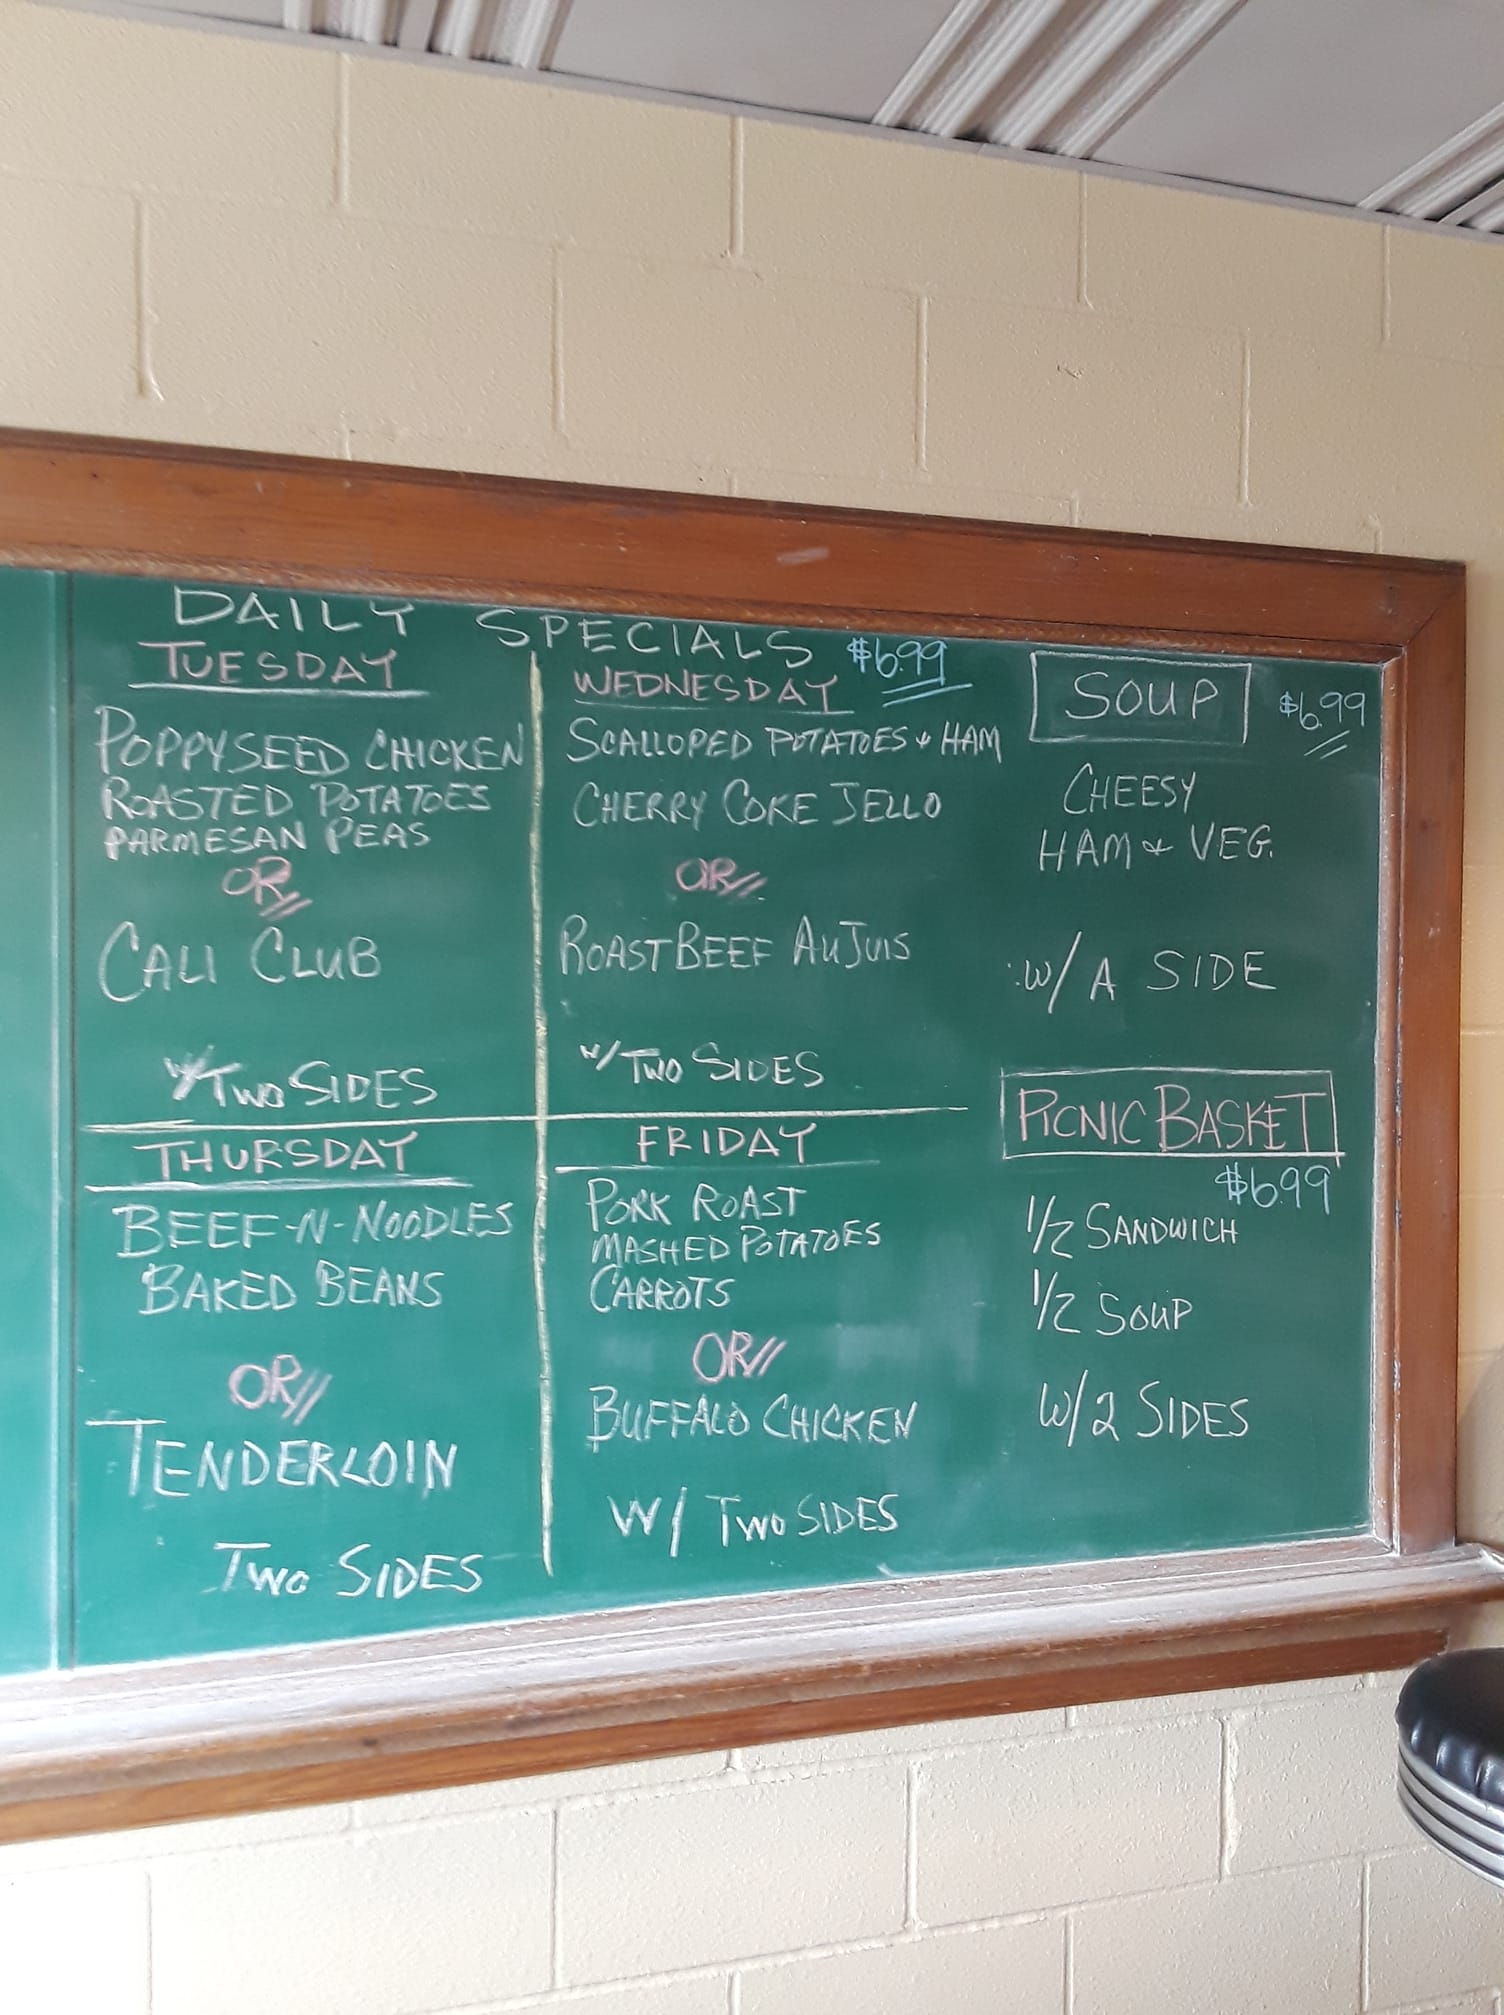 DAILY SPECIALS $6.99
TUESDAY
POPPYSEED CHICKEN
ROASTED POTATOES
PARMESAN PEAS
OR
CALI CLUB
W/ TWO SIDES
WEDNESDAY
SCALLOPED POTATOES & HAM
CHERRY COKE JELLO
OR
ROAST BEEF AU JUIS
W/ TWO SIDES
THURSDAY
BEEF-N-NOODLES
BAKED BEANS
OR
TENDERLOIN
TWO SIDES
FRIDAY
PORK ROAST
MASHED POTATOES
CARROTS
OR
BUFFALO CHICKEN
W/ TWO SIDES
SOUP $6.99
CHEESY
HAM & VEG.
W/ A SIDE
PICNIC BASKET
$6.99
1/2 SANDWICH
1/2 SOUP
W/2 SIDES